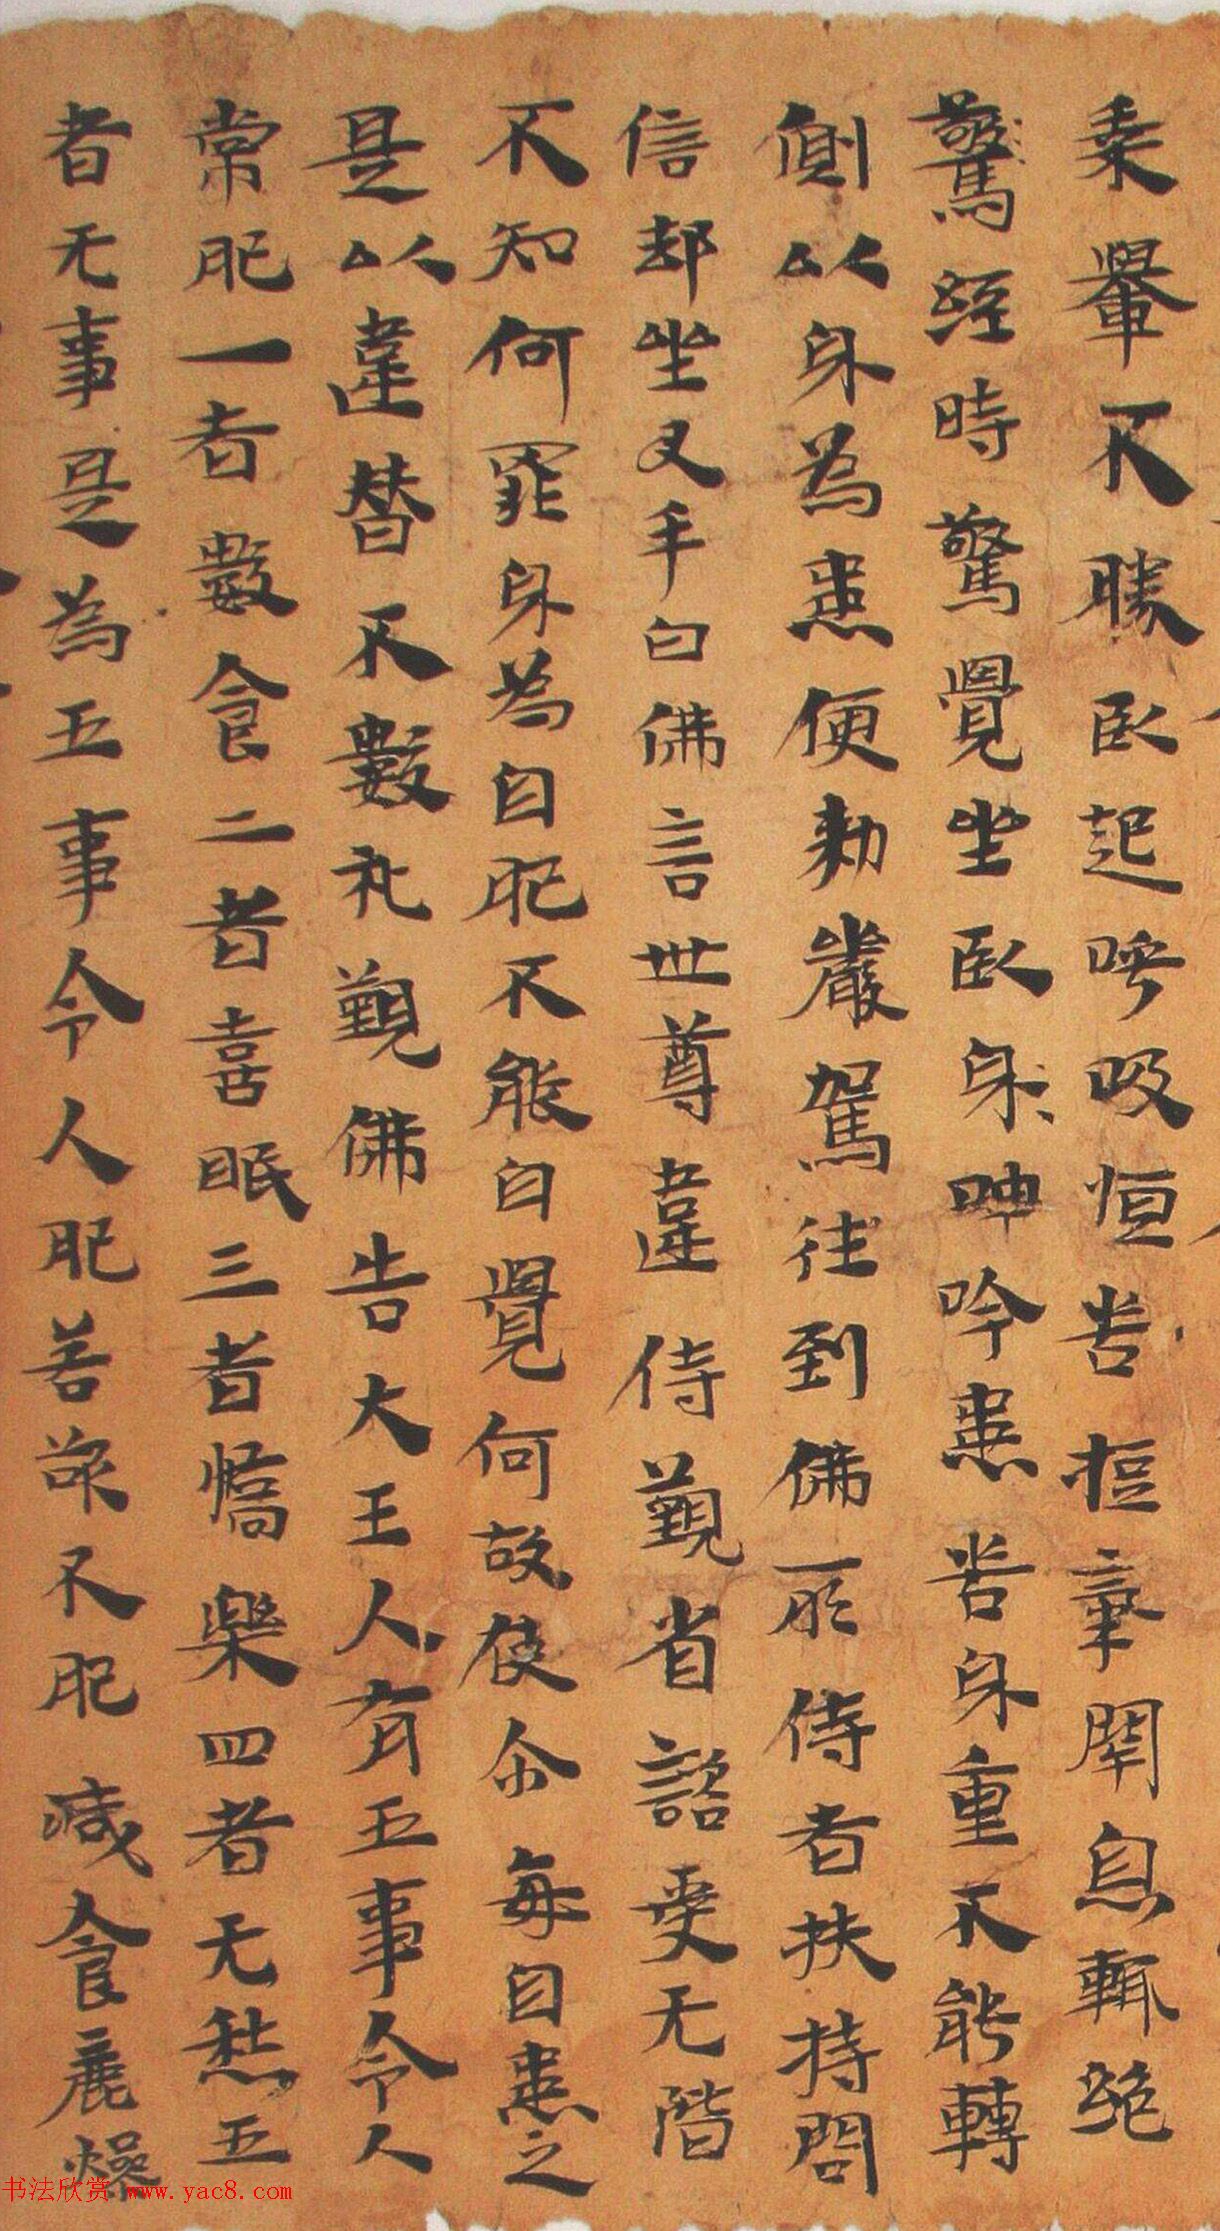 乗轝不勝臥起呼吸恒苦短氣閇息輒絕
驚經時驚覺坐臥身呻吟患苦身重不能轉
側以身為患便勑嚴駕往到佛所侍者扶持問
信却坐叉手白佛言世尊違侍覲省諮受无階
不知何罪身為自肥不能自覺何故使尒每自患之
是以違替不數礼覲佛告大王人有五事令人
常肥一者數食二者喜眠三者憍樂四者无愁五
者无事是為五事令人肥若欲不肥減食麁燥
书法欣赏 www.yac8.com